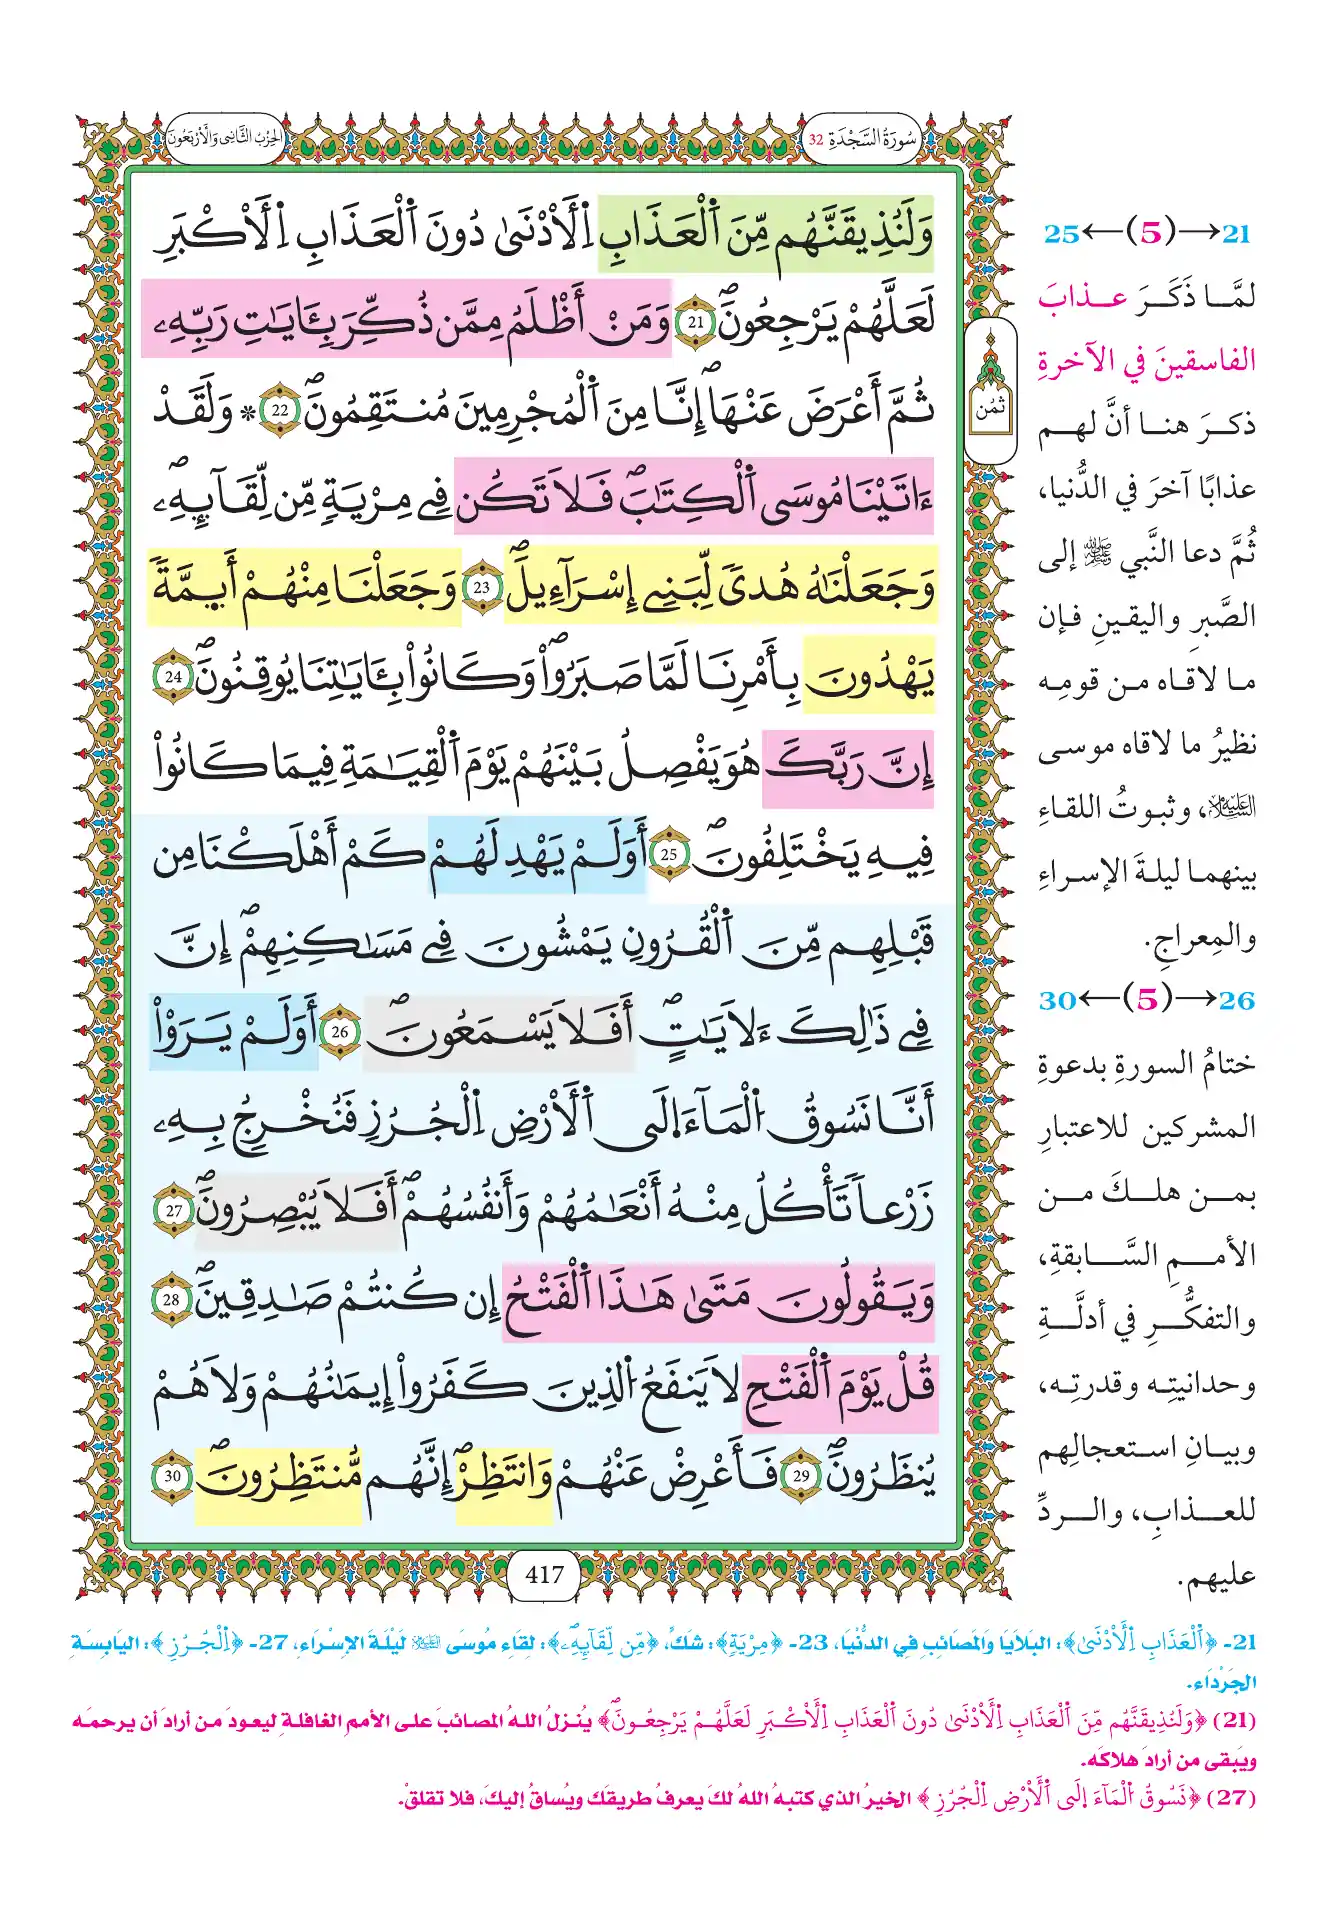 سُورَةُ السَّجْدَةِ 32
الحِزْبُ الثَّانِي وَالأَرْبَعُونَ
وَلَنُذِيقَنَّهُم مِّنَ اَ۬لْعَذَابِ اِ۬لَادْنَىٰ دُونَ اَ۬لْعَذَابِ اِ۬لَاكْبَرِ
لَعَلَّهُمْ يَرْجِعُونَۖ 21 وَمَنَ اَظْلَمُ مِمَّن ذُكِّرَ بِـَٔايَٰتِ رَبِّهِۦ
ثُمَّ أَعْرَضَ عَنْهَاۖ إِنَّا مِنَ اَ۬لْمُجْرِمِينَ مُنتَقِمُونَۖ 22 * وَلَقَدْ
ءَاتَيْنَا مُوسَى اَ۬لْكِتَٰبَۖ فَلَا تَكُن فِے مِرْيَةٖ مِّن لِّقَآئِهِۦۖ
وَجَعَلْنَٰهُ هُديٗ لِّبَنِے إِسْرَآءِيلَۖ 23 وَجَعَلْنَا مِنْهُمُۥٓ أَئِمَّةٗ
يَهْدُونَ بِأَمْرِنَا لَمَّا صَبَرُواْۖ وَكَانُواْ بِـَٔايَٰتِنَا يُوقِنُونَۖ 24
إِنَّ رَبَّكَ هُوَ يَفْصِلُ بَيْنَهُمْ يَوْمَ اَ۬لْقِيَٰمَةِ فِيمَا كَانُواْ
فِيهِ يَخْتَلِفُونَۖ 25 أَوَلَمْ يَهْدِ لَهُمْ كَمَ اَهْلَكْنَا مِن
قَبْلِهِم مِّنَ اَ۬لْقُرُونِ يَمْشُونَ فِے مَسَٰكِنِهِمُۥٓۖ إِنَّ
فِے ذَٰلِكَ ءَلَايَٰتٍۖ اَفَلَا يَسْمَعُونَۖ 26 أَوَلَمْ يَرَوَاْ
اَنَّا نَسُوقُ اُ۬لْمَآءَ اِ۪لَى اَ۬لَارْضِ اِ۬لْجُرُزِ فَنُخْرِجُ بِهِۦ
زَرْعاٗ تَأْكُلُ مِنْهُ أَنْعَٰمُهُمْ وَأَنفُسُهُمُۥٓۖ أَفَلَا يُبْصِرُونَۖ 27
وَيَقُولُونَ مَتَىٰ هَٰذَا اَ۬لْفَتْحُ إِن كُنتُمْ صَٰدِقِينَۖ 28
قُلْ يَوْمَ اَ۬لْفَتْحِ لَا يَنفَعُ اُ۬لذِينَ كَفَرُواْ إِيمَٰنُهُمْ وَلَا هُمْ
يُنظَرُونَۖ 29 فَأَعْرِضْ عَنْهُمْ وَانتَظِرِۖ اِنَّهُم مُّنتَظِرُونَۖ 30
417
ثُمُن
21→(5)←25
لمَّا ذَكَرَ عذابَ
الفاسقينَ في الآخرةِ
ذكرَ هنا أنَّ لهم
عذابًا آخرَ في الدُّنيا،
ثُمَّ دعا النَّبي ﷺ إلى
الصَّبرِ واليقينِ فإن
ما لاقاه من قومِه
نظيرُ ما لاقاه موسى
عليه السلام، وثبوتُ اللقاءِ
بينهما ليلةَ الإسراءِ
والمِعراجِ.
26→(5)←30
ختامُ السورةِ بدعوةِ
المشركين للاعتبارِ
بمن هلكَ من
الأممِ السَّابقةِ،
والتفكُّرِ في أدلَّةِ
وحدانيتِه وقدرتِه،
وبيانِ استعجالِهم
للعذابِ، والردِّ
عليهم.
21- ﴿اَ۬لْعَذَابِ اِ۬لَادْنَىٰ﴾: البَلَايَا وَالمَصَائِبِ فِي الدُّنْيَا، 23- ﴿مِرْيَةٖ﴾: شَكٍّ، ﴿مِّن لِّقَآئِهِۦۖ﴾: لِقَاءِ مُوسَى عليه السلام لَيْلَةَ الإِسْرَاءِ، 27- ﴿اِ۬لْجُرُزِ﴾: اليَابِسَةِ
الجَرْدَاءِ.
(21) ﴿وَلَنُذِيقَنَّهُم مِّنَ اَ۬لْعَذَابِ اِ۬لَادْنَىٰ دُونَ اَ۬لْعَذَابِ اِ۬لَاكْبَرِ لَعَلَّهُمْ يَرْجِعُونَۖ﴾ يُنزلُ اللهُ المصائبَ على الأممِ الغافلةِ ليعودَ من أرادَ أن يرحمَه
ويَبقى من أرادَ هلاكَه.
(27) ﴿نَسُوقُ اُ۬لْمَآءَ اِ۪لَى اَ۬لَارْضِ اِ۬لْجُرُزِ﴾ الخيرُ الذي كتبهُ اللهُ لكَ يعرفُ طريقَك ويُساقُ إليكَ، فلا تقلقْ.